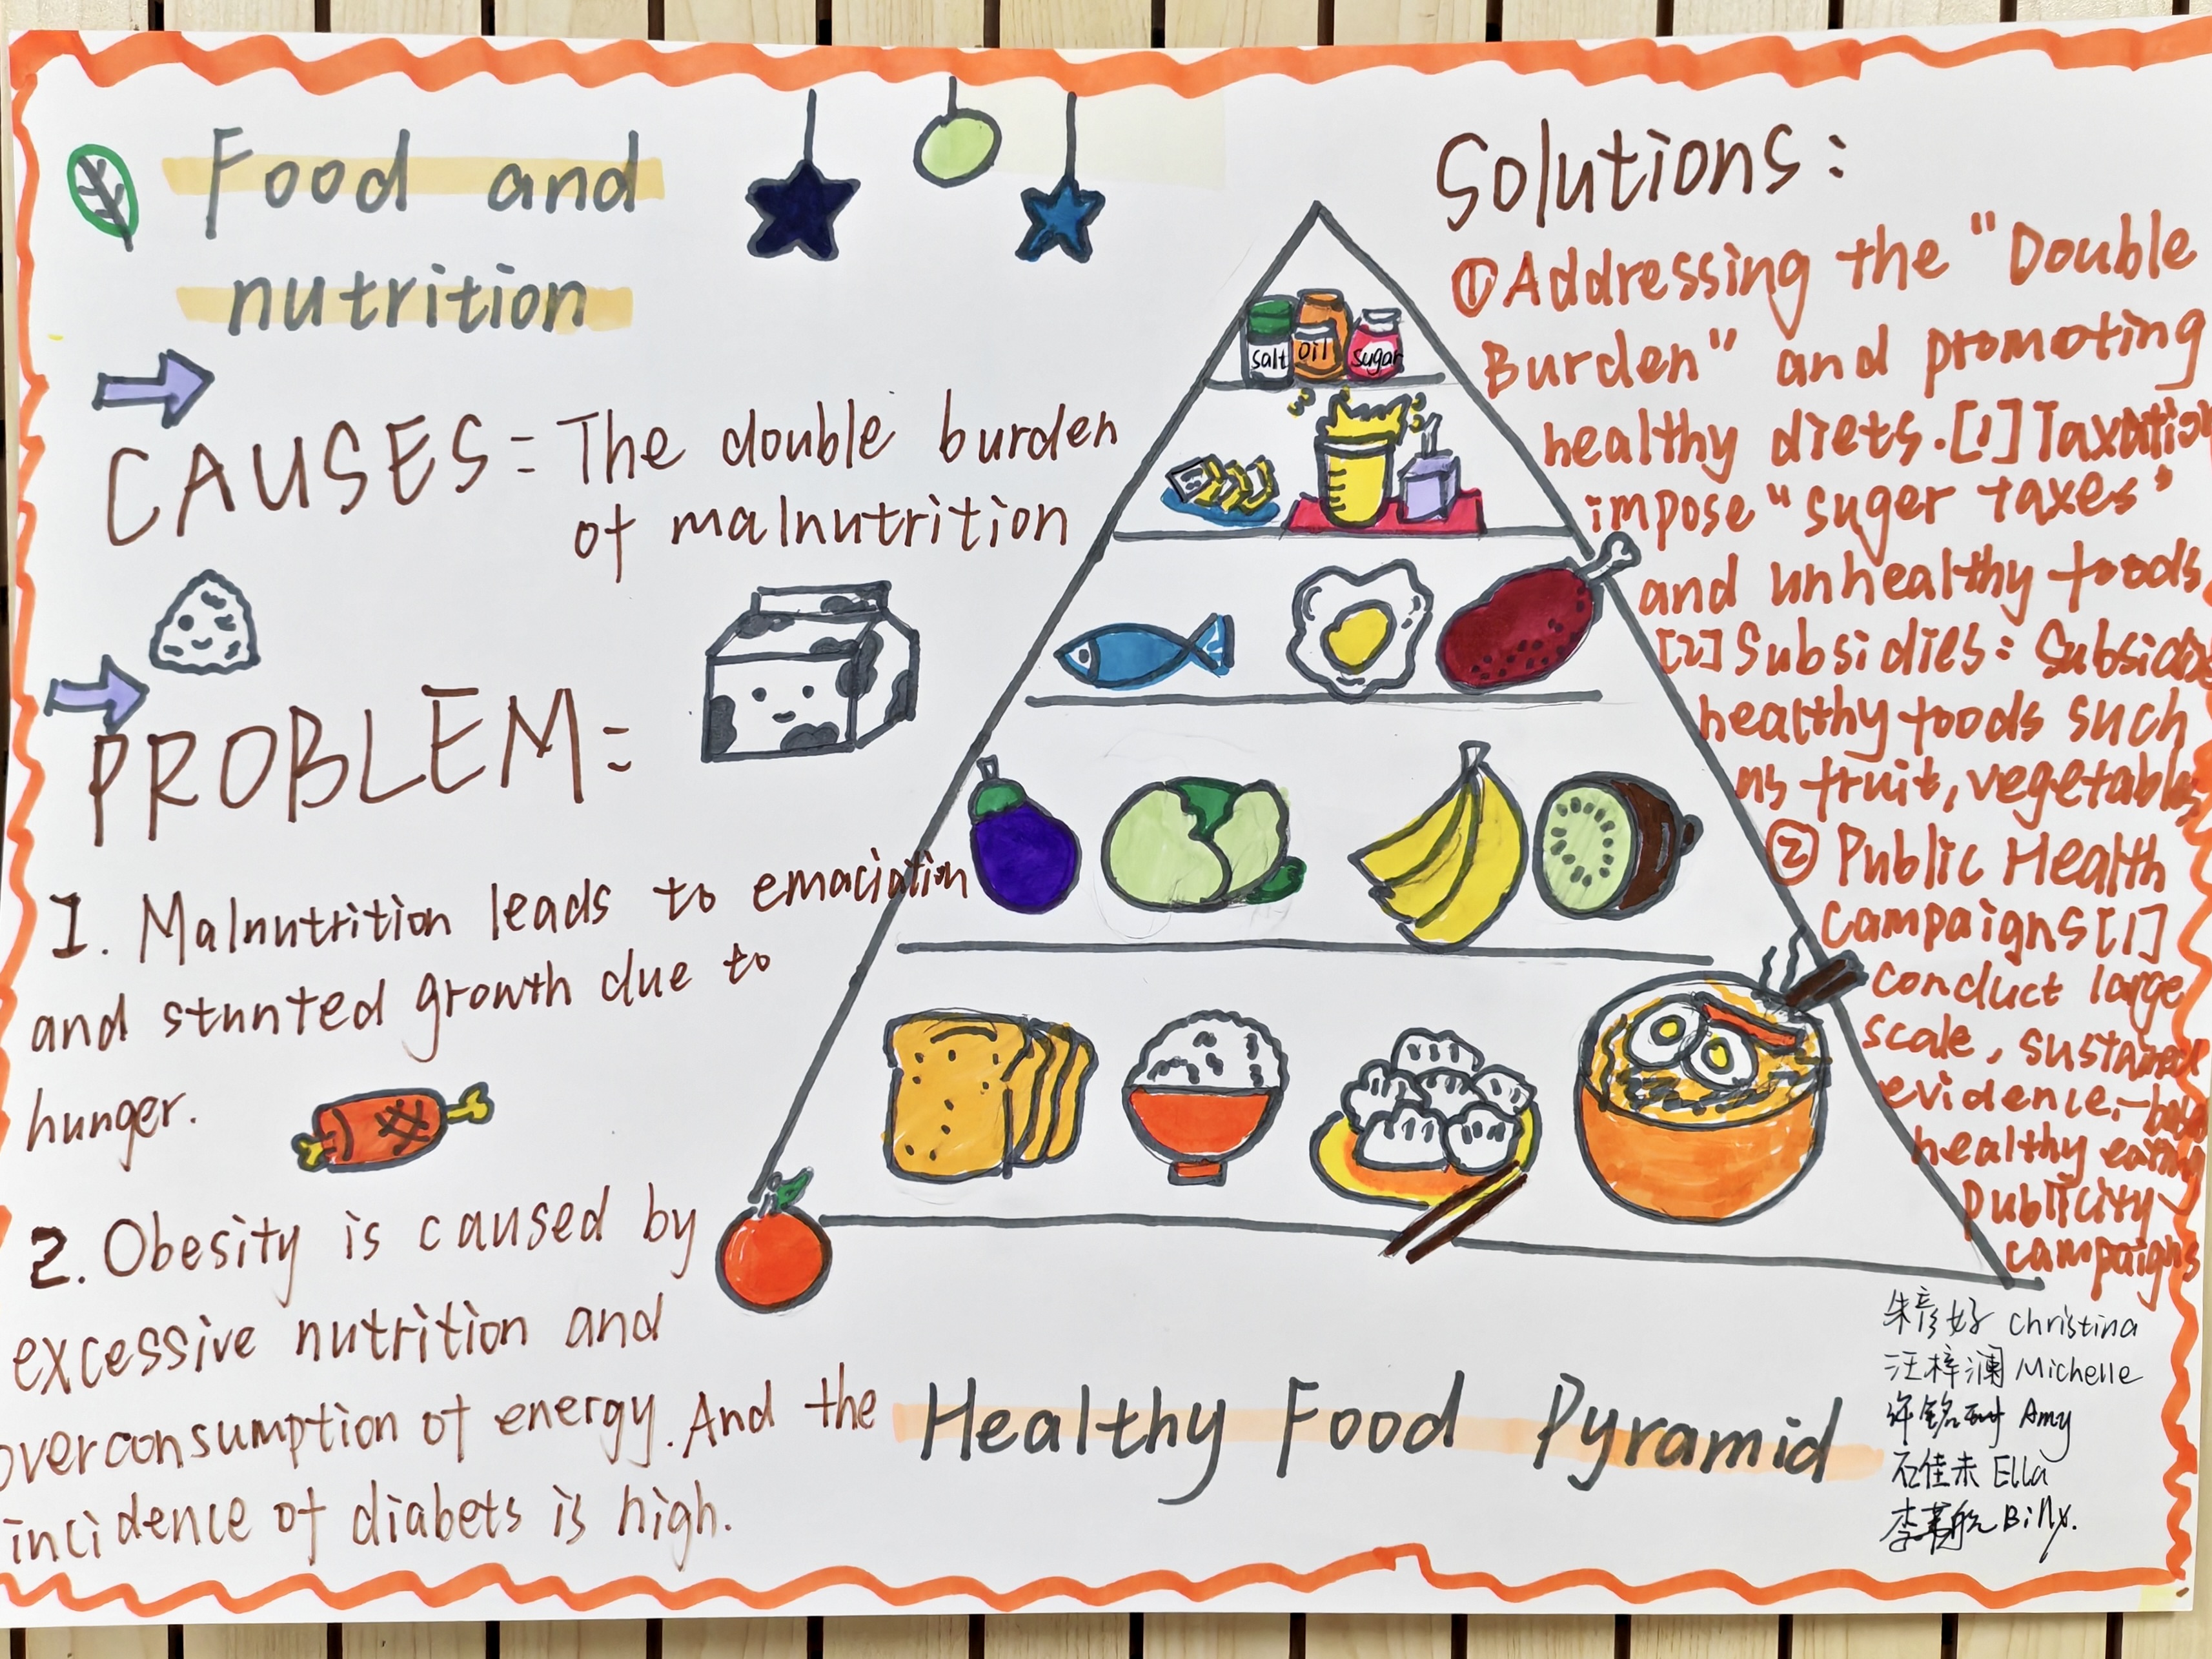 Food and
nutrition
CAUSES: The double burden
of malnutrition
PROBLEM:
1. Malnutrition leads to emaciation
and stunted growth due to
hunger.
2. Obesity is caused by
excessive nutrition and
overconsumption of energy. And the
incidence of diabets is high.
salt oil sugar
Healthy Food Pyramid
Solutions:
①Addressing the "Double
Burden" and promoting
healthy diets.[1]Taxation
impose "suger taxes"
and unhealthy foods.
[2]Subsidies: Subsidize
healthy foods such
as fruit, vegetables
② Public Health
Campaigns[1]
conduct large
scale, sustained
evidence,-based
healthy eating
publicity
campaigns
朱彦好 Christina
汪梓澜 Michelle
许铭 Amy
石佳未 Ella
李 航 Billy.